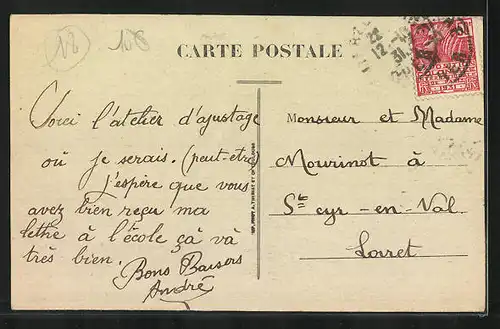 18 108
CARTE POSTALE
Voici l'atelier d'ajustage
où je serais. (peut-être)
J'espère que vous
avez bien reçu ma
lettre à l'école çà và
très bien.
Bons Baisers
André
Monsieur et Madame
Mourinot à
Ste cyr-en-Val
Loiret